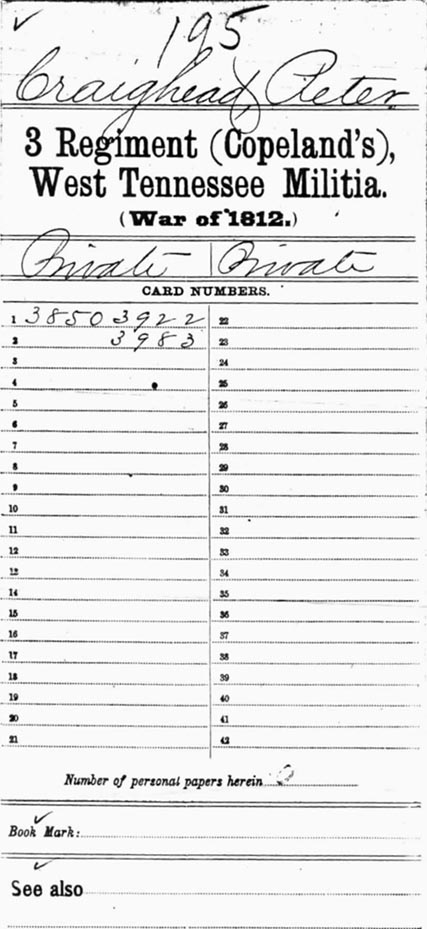 ✓
195
Craighead, Peter
3 Regiment (Copeland's),
West Tennessee Militia.
(War of 1812.)
Private | Private
CARD NUMBERS.
1 38503922 22
2 3983 23
3 24
4 25
5 26
6 27
7 28
8 29
9 30
10 31
11 32
12 33
13 34
14 35
15 36
16 37
17 38
18 39
19 40
20 41
21 42
Number of personal papers herein 0
Book Mark:
See also